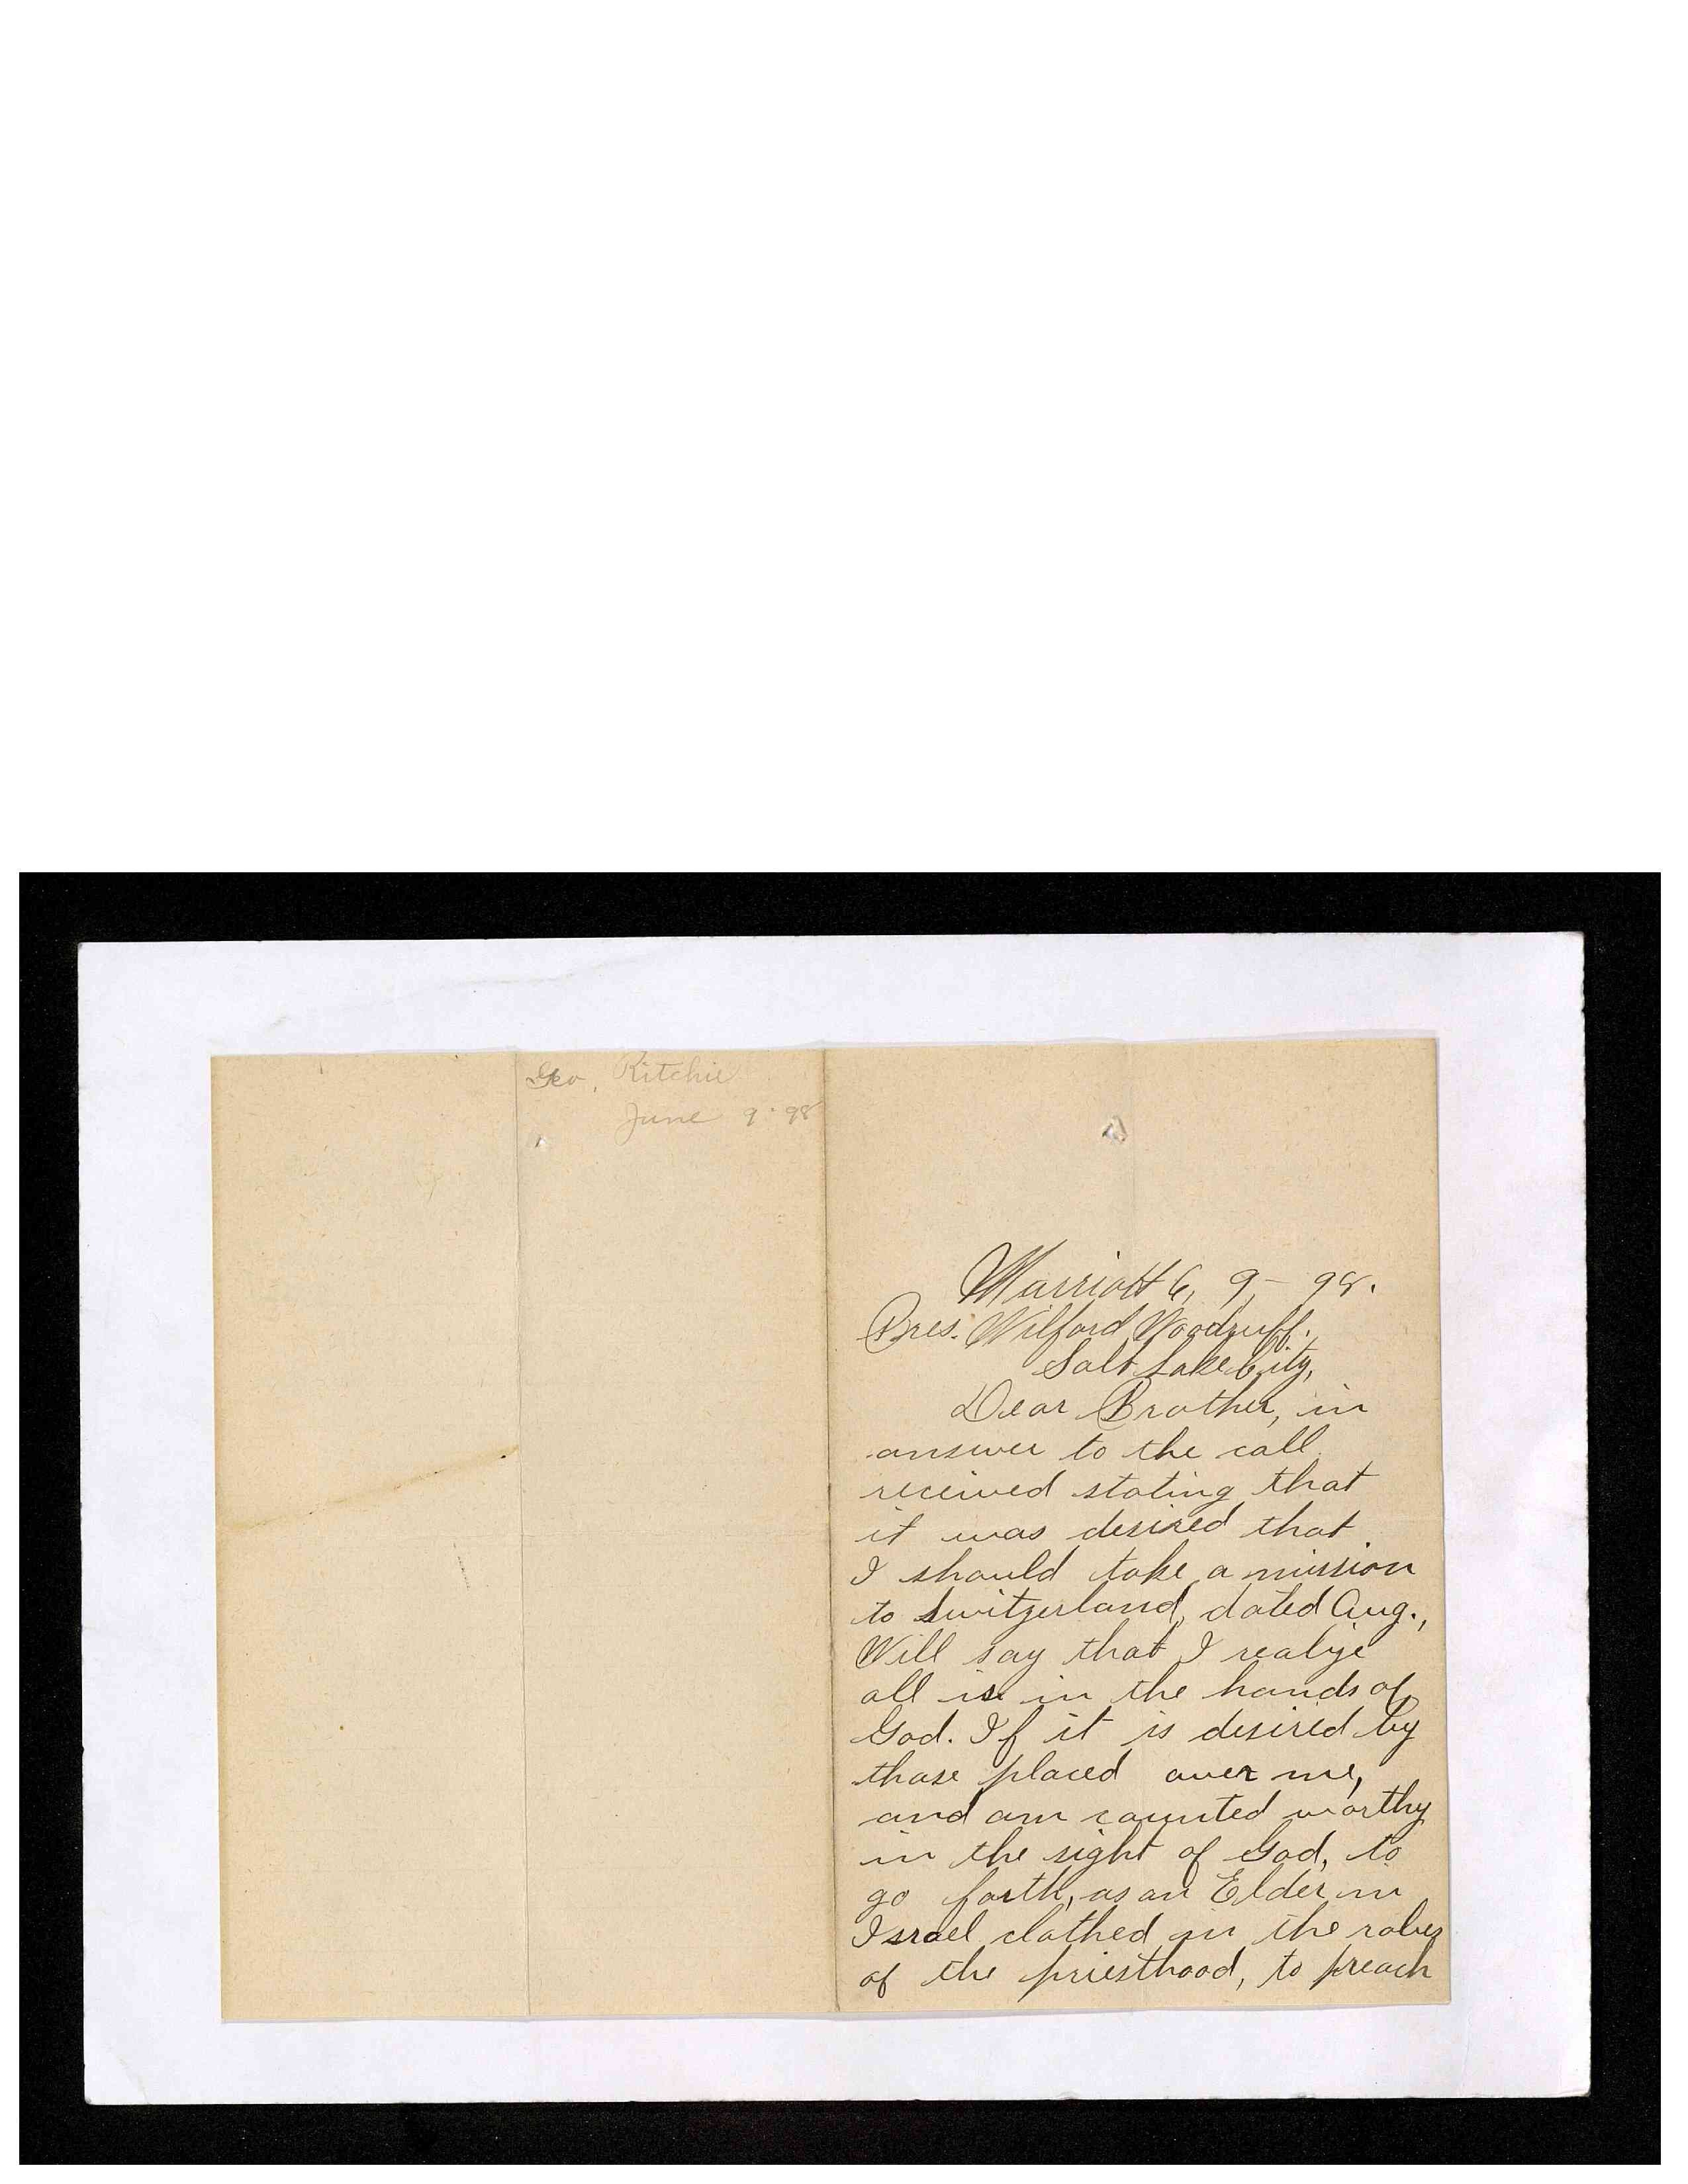 Geo. Ritchie
June 9 · 98
Marriott 6, 9 - 98.
Pres. Wilford Woodruff.
Salt Lake City,
Dear Brother, in
answer to the call
received stating that
it was desired that
I should take a mission
to Switzerland, dated Aug.,
Will say that I realize
all is in the hands of
God. If it is desired by
those placed over me,
and am counted worthy
in the sight of God, to
go forth, as an Elder in
Israel clothed in the robes
of the priesthood, to preach